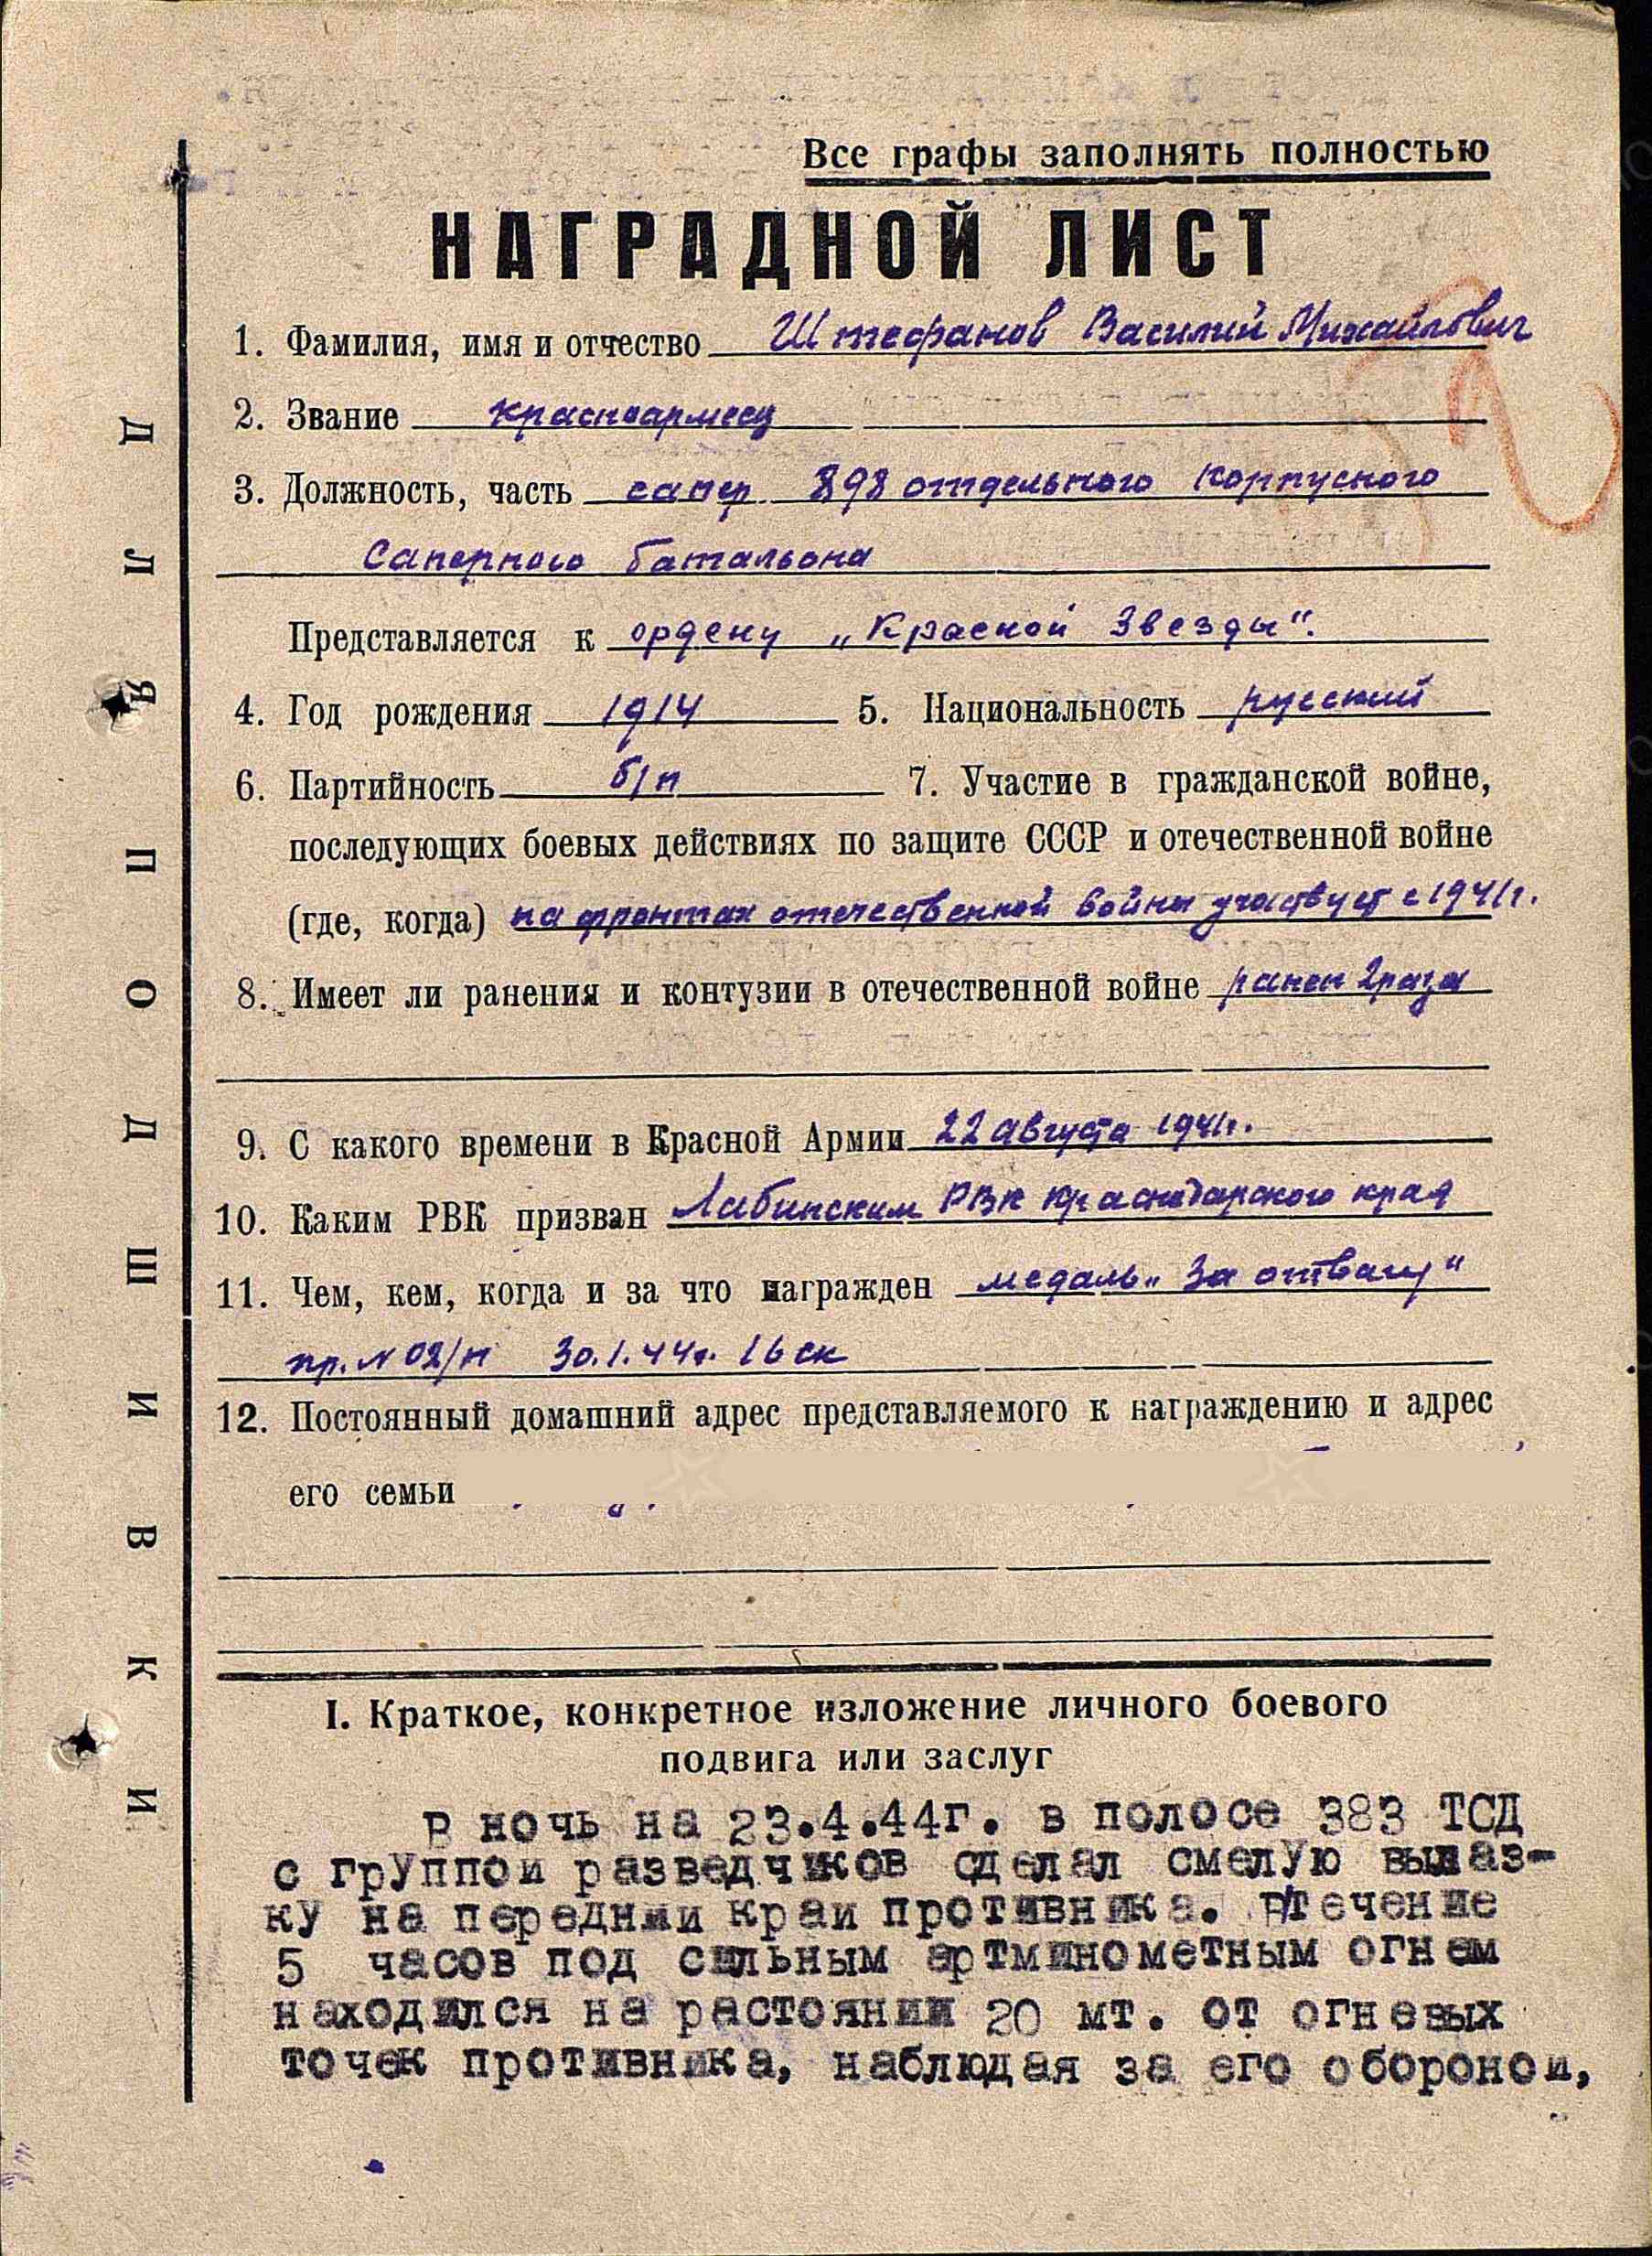 Все графы заполнять полностью
НАГРАДНОЙ ЛИСТ
1. Фамилия, имя и отчество Штефанов Василий Михайлович
2. Звание красноармеец
3. Должность, часть сапер 898 отдельного корпусного
Саперного батальона
Представляется к ордену „Красной Звезды“.
4. Год рождения 1914 5. Национальность русский
6. Партийность б/п 7. Участие в гражданской войне,
последующих боевых действиях по защите СССР и отечественной войне
(где, когда) на фронтах отечественной войны участвует с 1941г.
8. Имеет ли ранения и контузии в отечественной войне ранен 2 раза
9. С какого времени в Красной Армии 22 августа 1941г.
10. Каким РВК призван Лабинским РВК Краснодарского края
11. Чем, кем, когда и за что награжден медаль „За отвагу“
пр. N 02/н 30.1.44г. 16 ск
12. Постоянный домашний адрес представляемого к награждению и адрес
его семьи
I. Краткое, конкретное изложение личного боевого
подвига или заслуг
В ночь на 23.4.44г. в полосе 383 ТСД
с группои разведчиков сделал смелую вылаз-
ку на переднии краи противника. В течение
5 часов под сильным артминометным огнем
находился на растоянии 20 мт. от огневых
точек противника, наблюдая за его оборонои,
ДЛЯ ПОДШИВКИ